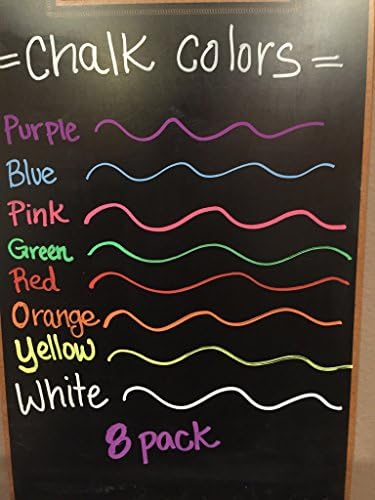 =Chalk Colors=
Purple
Blue
Pink
Green
Red
Orange
Yellow
White
8 pack